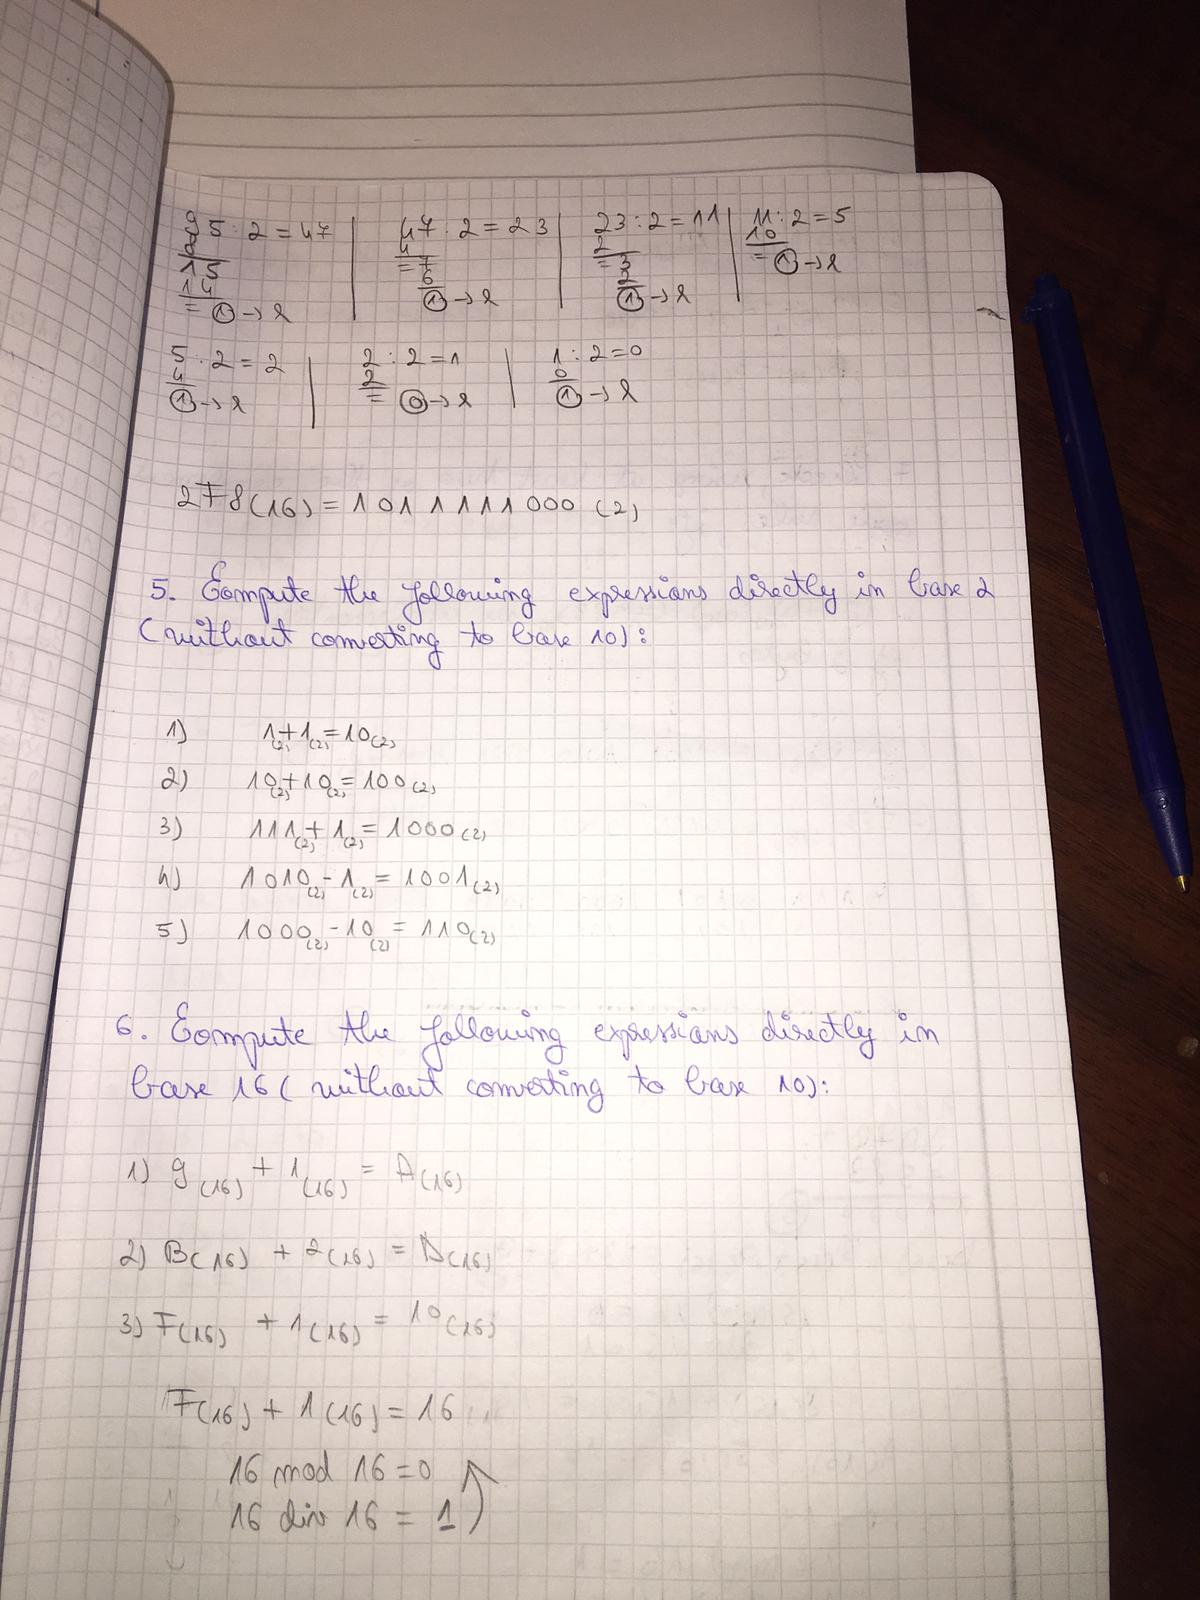 95 : 2 = 47 | 47 : 2 = 23 | 23 : 2 = 11 | 11 : 2 = 5
8 4 2 10
15 = 7 = 3 = 1 → r
14 6 2
= 1 → r 1 → r 1 → r
5 : 2 = 2 | 2 : 2 = 1 | 1 : 2 = 0
4 2 0
1 → r = 0 → r 1 → r
2F8(16) = 1011111000 (2)
5. Compute the following expressions directly in base 2
(without converting to base 10):
1) 1(2) + 1(2) = 10(2)
2) 10(2) + 10(2) = 100(2)
3) 111(2) + 1(2) = 1000(2)
4) 1010(2) - 1(2) = 1001(2)
5) 1000(2) - 10(2) = 110(2)
6. Compute the following expressions directly in
base 16 (without converting to base 10):
1) 9(16) + 1(16) = A(16)
2) B(16) + 2(16) = D(16)
3) F(16) + 1(16) = 10(16)
F(16) + 1(16) = 16
16 mod 16 = 0
16 div 16 = 1